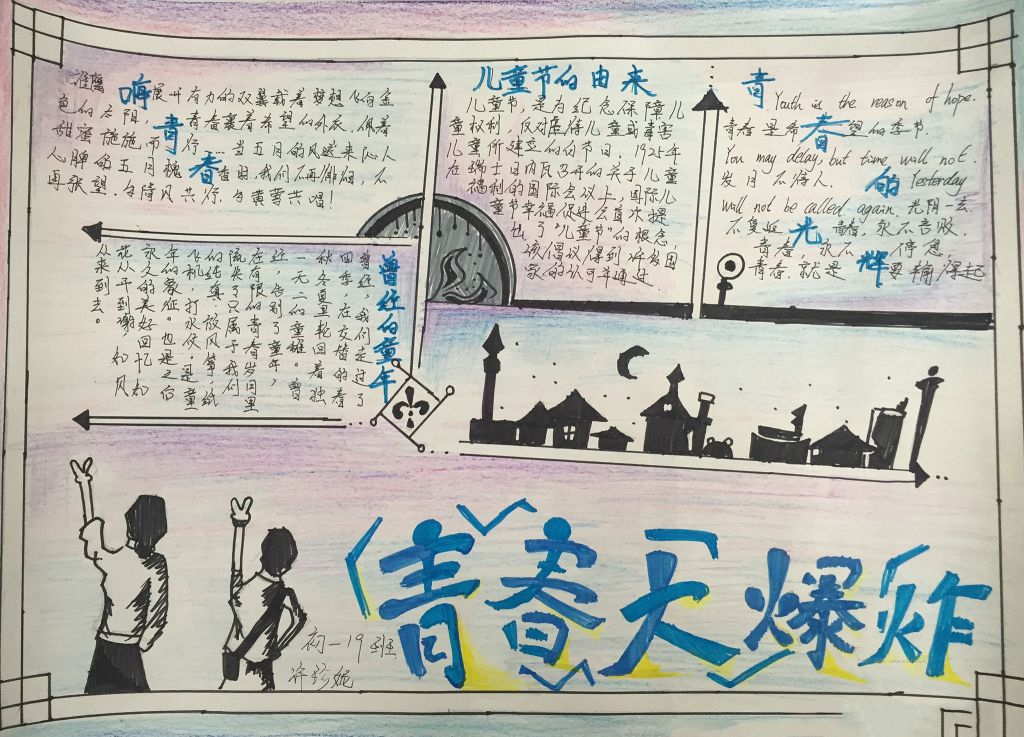 嗨青春
谁赐展开有力的双翼载着梦想飞向金
色的太阳，青春裹着希望的外衣，佩着
甜蜜施施而行……当五月的风送来沁人
心脾的五月槐香时，我们不再徘徊，不
再张望，与清风共行，与黄莺共唱！
儿童节的由来
儿童节，是为纪念保障儿
童权利，反对虐待儿童或毒害
儿童所建立的的节日，1925年
在瑞士日内瓦召开的关于儿童
福利的国际会议上，国际儿
童节幸福促进会首次提
出了"儿童节"的概念，
该倡议得到许多国
家的认可并通过
青春的光辉
Youth is the reason of hope.
青春是希望的季节.
You may delay, but time will not.
岁月不待人.
Yesterday
will not be called again. 光阴一去
不复返 青春，永不言败，
青春，永不停息，
青春，就是要闹得起
曾经的童年
曾经，我们走过了
四季，在交替的春
秋冬夏里轮回着独
一无二的童雄。曾
经，告别了童年，
在有限的青春岁月里
流失了只属于我们
的纯真，放风筝，纸
飞机，打水仗，是童
年的象征。也是之后
永久的美好回忆如
花从开到谢，如风
从来到去。
青春大爆炸
初一19班
许珍妮